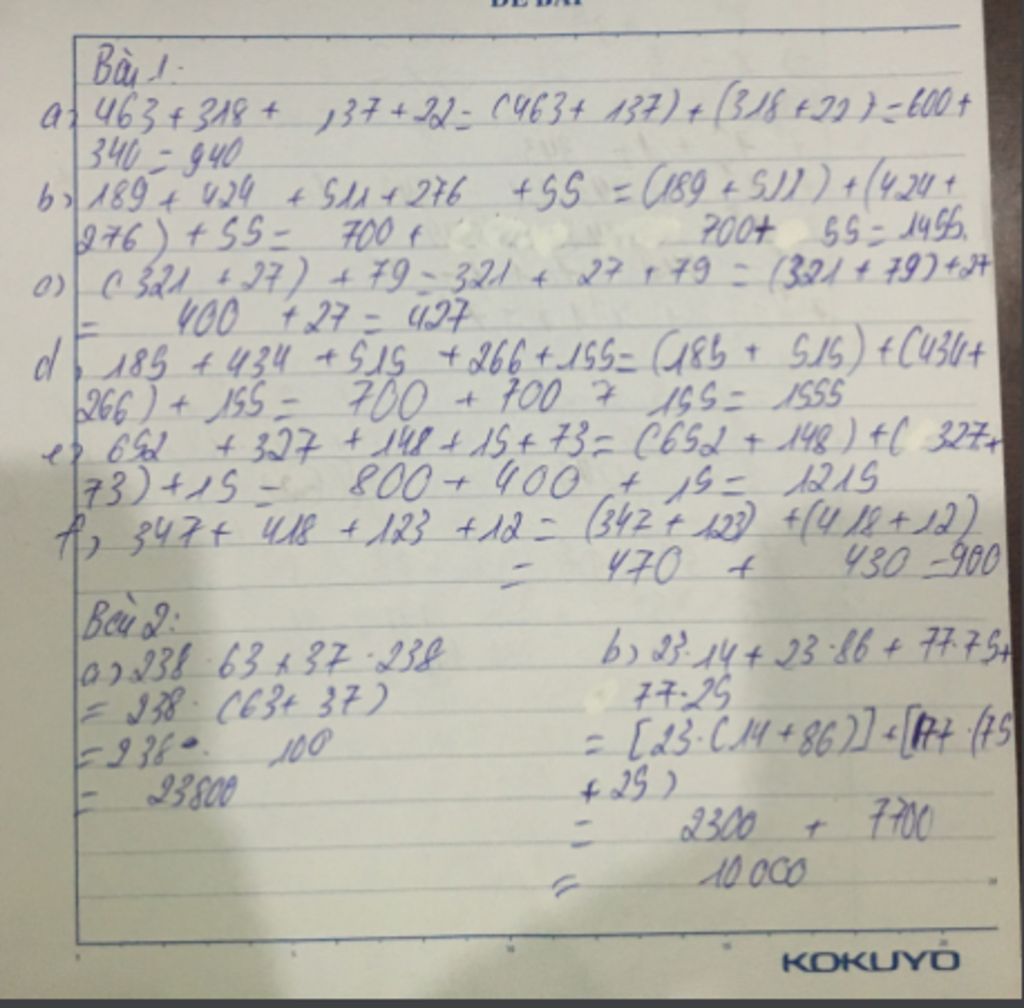 ĐỀ BÀI
Bài 1:
a) 463 + 318 + 137 + 22 = (463 + 137) + (318 + 22) = 600 +
340 = 940
b) 189 + 424 + 511 + 276 + 55 = (189 + 511) + (424 +
276) + 55 = 700 + 700 + 55 = 1455.
c) (321 + 27) + 79 = 321 + 27 + 79 = (321 + 79) + 27
= 400 + 27 = 427
d, 185 + 434 + 515 + 266 + 155 = (185 + 515) + (434 +
266) + 155 = 700 + 700 + 155 = 1555
e) 652 + 327 + 148 + 15 + 73 = (652 + 148) + (327 +
73) + 15 = 800 + 400 + 15 = 1215
f, 347 + 418 + 123 + 12 = (347 + 123) + (418 + 12)
= 470 + 430 = 900
Bài 2:
a) 238 . 63 + 37 . 238
= 238 . (63 + 37)
= 238 . 100
= 23800
b) 23.14 + 23.86 + 77.75 +
77.25
= [23.(14 + 86)] + [77.(75
+ 25)
= 2300 + 7700
= 10000
KOKUYO